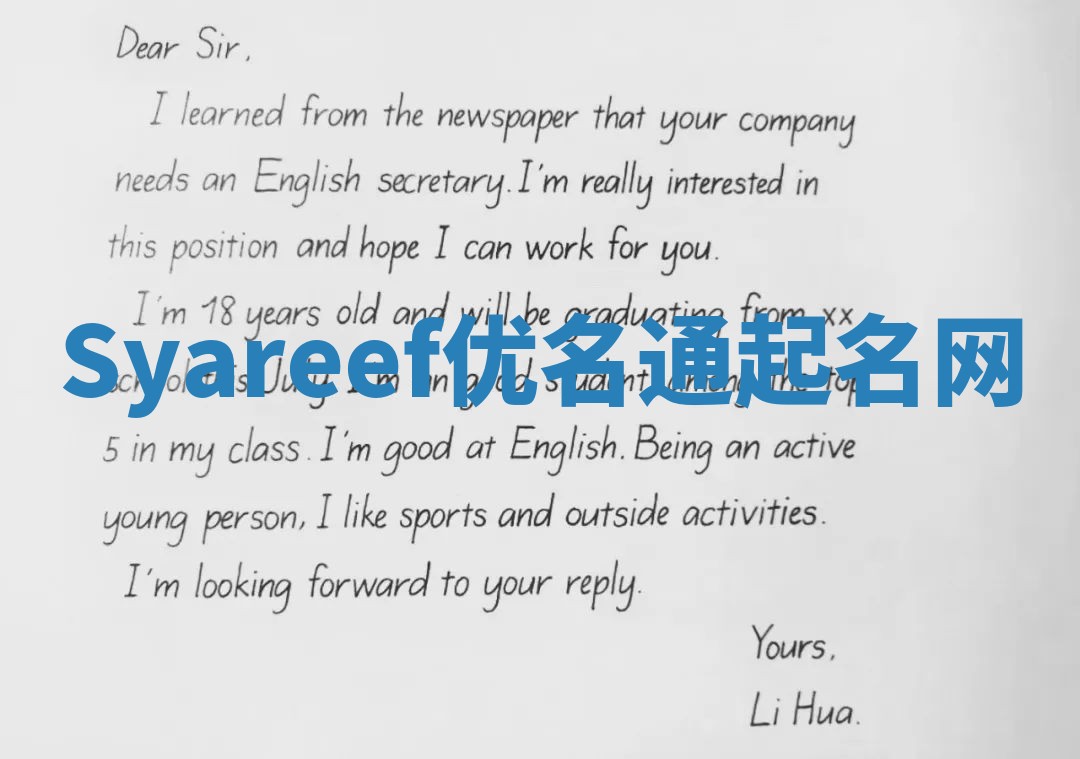 Dear Sir,
I learned from the newspaper that your company
needs an English secretary. I'm really interested in
this position and hope I can work for you.
I'm 18 years old and will be graduating from xx
Syareef优名通起名网
school this July. I'm an good student among the top
5 in my class. I'm good at English. Being an active
young person, I like sports and outside activities.
I'm looking forward to your reply.
Yours,
Li Hua.